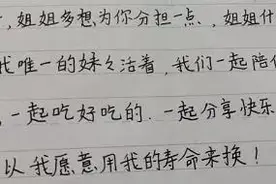 ,姐姐多想为你分担一点,姐姐什
我唯一的妹妹活着,我们一起陪
,一起吃好吃的.一起分享快乐
以我愿意用我的寿命来换!